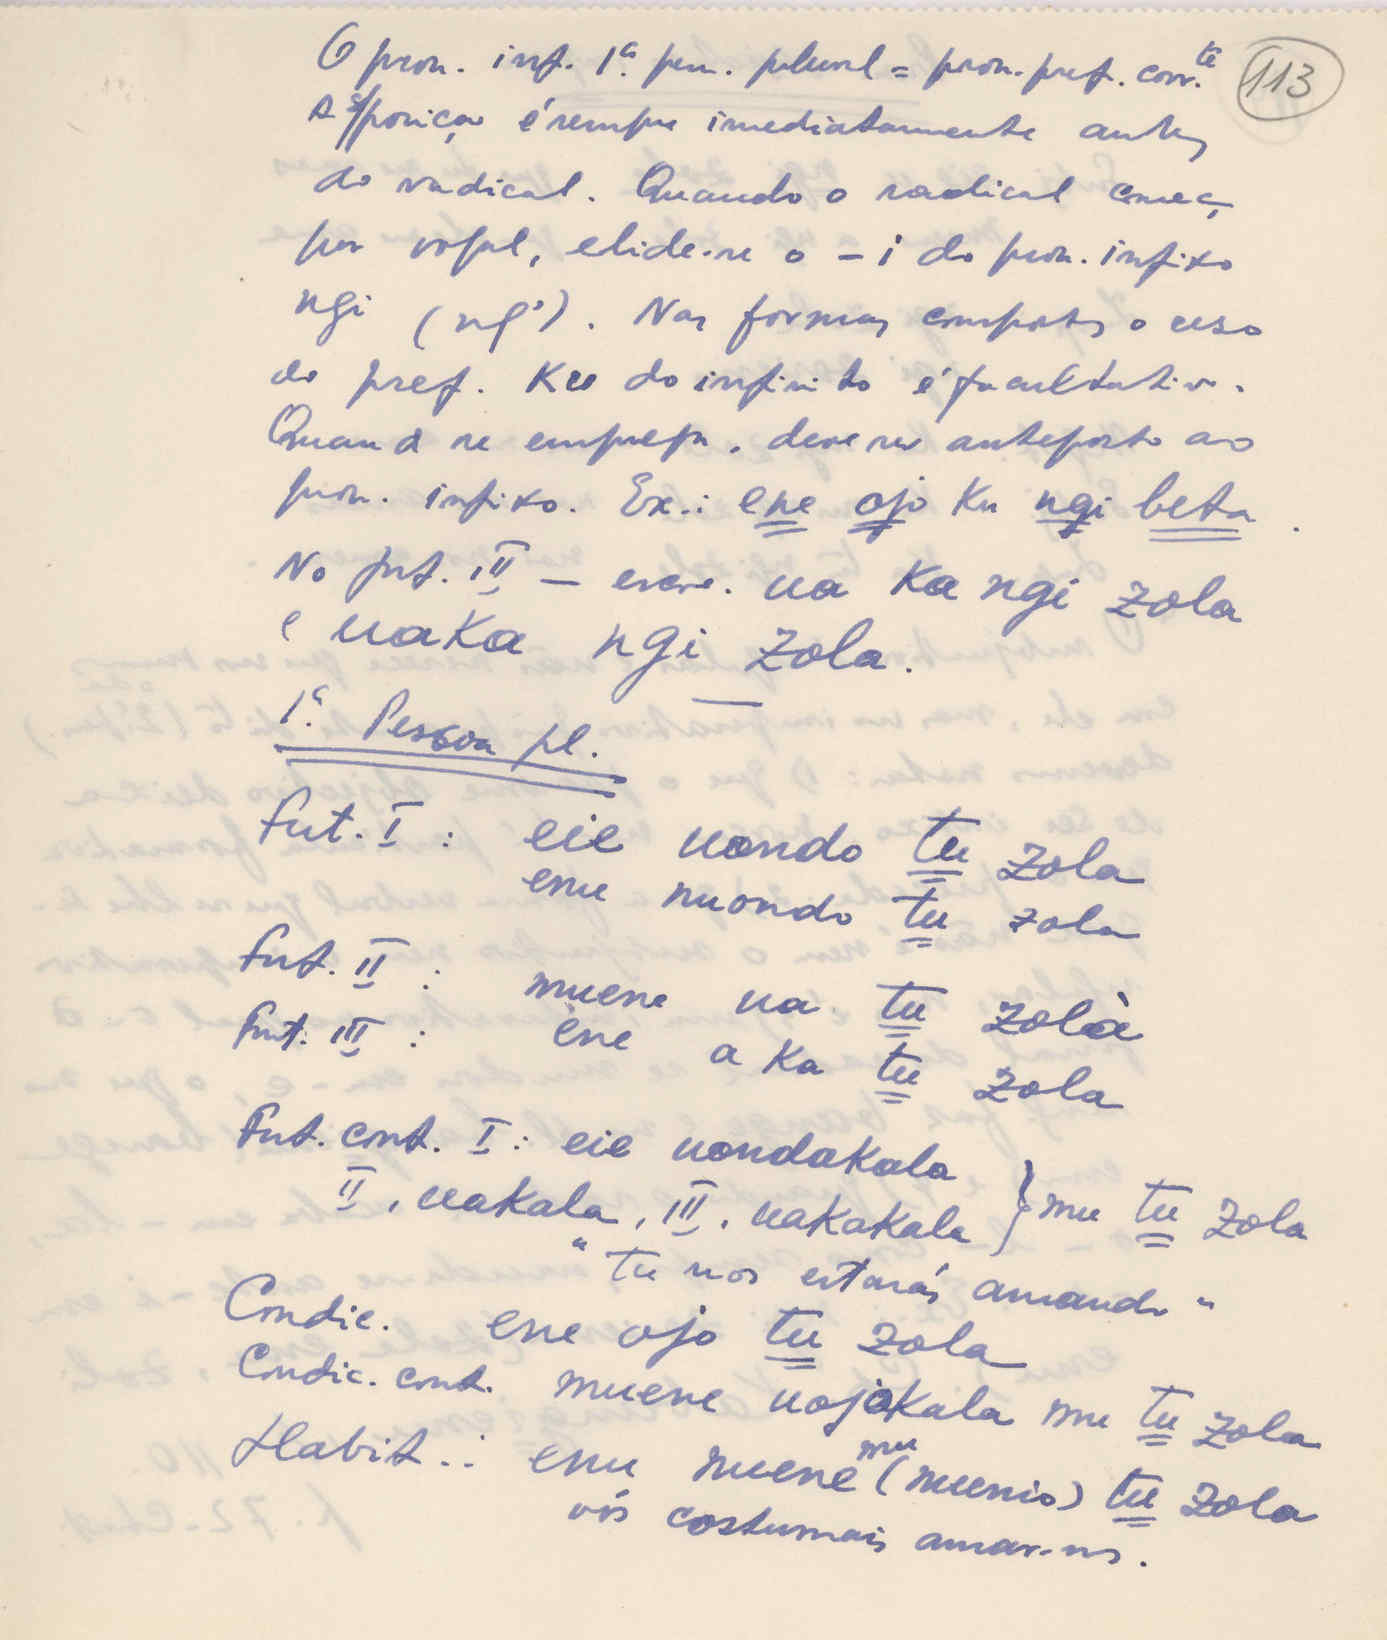 113
O pron. inf. 1ª. pess. plural = pron. pref. corr.te
A posição é sempre imediatamente antes
do radical. Quando o radical começa
por vogal, elide-se o -i do pron. infixo
ngi (ng'). Nas formas compostas o uso
do pref. Ku do infinito é facultativo.
Quando se emprega, deve ser anteposto ao
pron. infixo. Ex.: ene ojo Ku ngi beta.
No fut. III — escre. ua Ka ngi zola
e uaKa ngi zola.
1ª. Pessoa pl.
Fut. I : eie uondo tu zola
enu nuondo tu zola
Fut. II : muene ua tu zolà
Fut. III : ene a Ka tu zola
Fut. cont. I : eie uondaKala
II, uaKala, III, uaKaKala } mu tu zola
"Tu nos estarás amando"
Condic. ene ojo tu zola
Condic. cont. muene uojoKala mu tu zola
Habit.: enu nuene mu (nuenio) tu zola
vós costumais amar-nos.